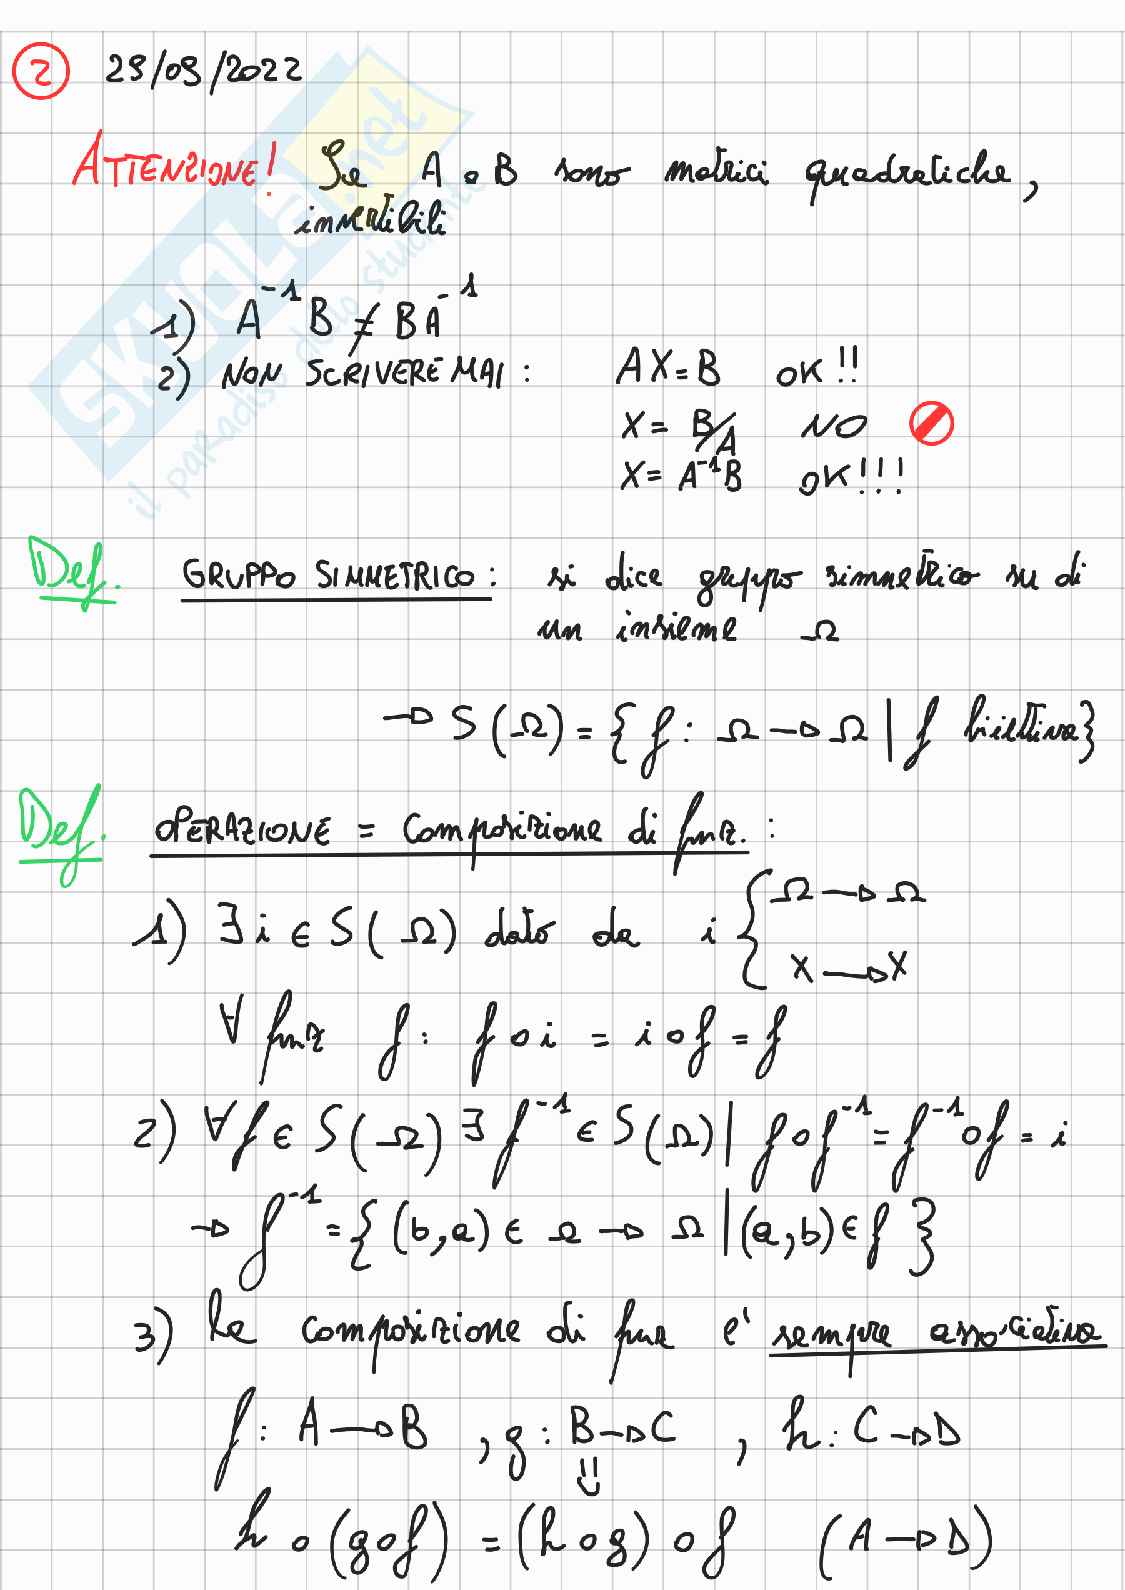 2 29/09/2022
ATTENZIONE! Se A e B sono matrici quadratiche,
invertibili
1) A⁻¹B ≠ BA⁻¹
2) NON SCRIVERE MAI : AX = B OK!!
X = B/A NO
X = A⁻¹B OK!!!
Def. GRUPPO SIMMETRICO : si dice gruppo simmetrico su di
un insieme Ω
→ S(Ω) = {f : Ω → Ω | f biiettiva}
Def. OPERAZIONE = composizione di funz. :
1) ∃ i ∈ S(Ω) dato da i { Ω → Ω
X → X
∀ funz f : f o i = i o f = f
2) ∀ f ∈ S(Ω) ∃ f⁻¹ ∈ S(Ω) | f o f⁻¹ = f⁻¹ o f = i
→ f⁻¹ = { (b,a) ∈ Ω → Ω | (a,b) ∈ f }
3) la composizione di funz e' sempre associativa
f : A → B , g : B → C , h : C → D
⇓
h o (g o f) = (h o g) o f (A → D)
SKUOLA.net
il paradiso dello studente